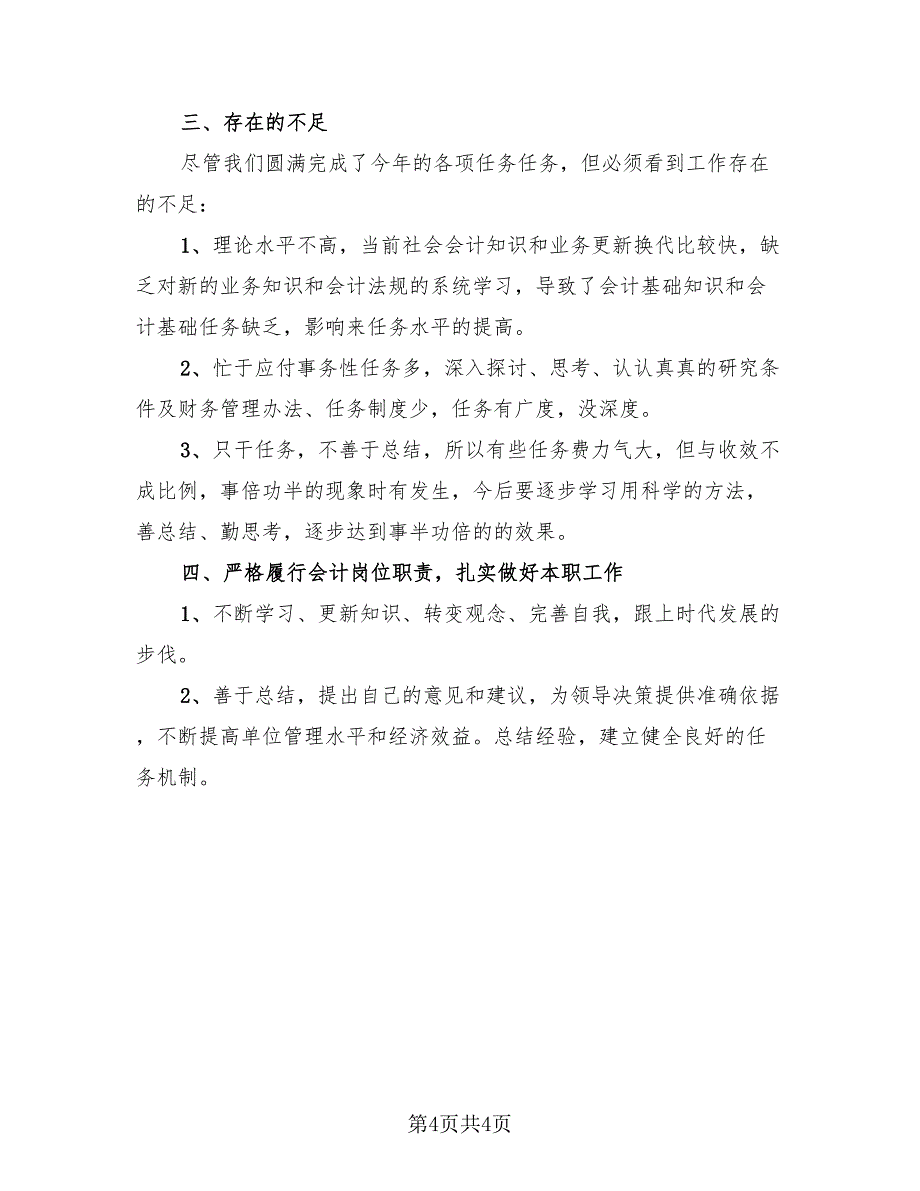 三、存在的不足
尽管我们圆满完成了今年的各项任务任务，但必须看到工作存在
的不足：
1、理论水平不高，当前社会会计知识和业务更新换代比较快，缺
乏对新的业务知识和会计法规的系统学习，导致了会计基础知识和会
计基础任务缺乏，影响来任务水平的提高。
2、忙于应付事务性任务多，深入探讨、思考、认认真真的研究条
件及财务管理办法、任务制度少，任务有广度，没深度。
3、只干任务，不善于总结，所以有些任务费力气大，但与收效不
成比例，事倍功半的现象时有发生，今后要逐步学习用科学的方法，
善总结、勤思考，逐步达到事半功倍的的效果。
四、严格履行会计岗位职责，扎实做好本职工作
1、不断学习、更新知识、转变观念、完善自我，跟上时代发展的
步伐。
2、善于总结，提出自己的意见和建议，为领导决策提供准确依据
，不断提高单位管理水平和经济效益。总结经验，建立健全良好的任
务机制。
第4页共4页